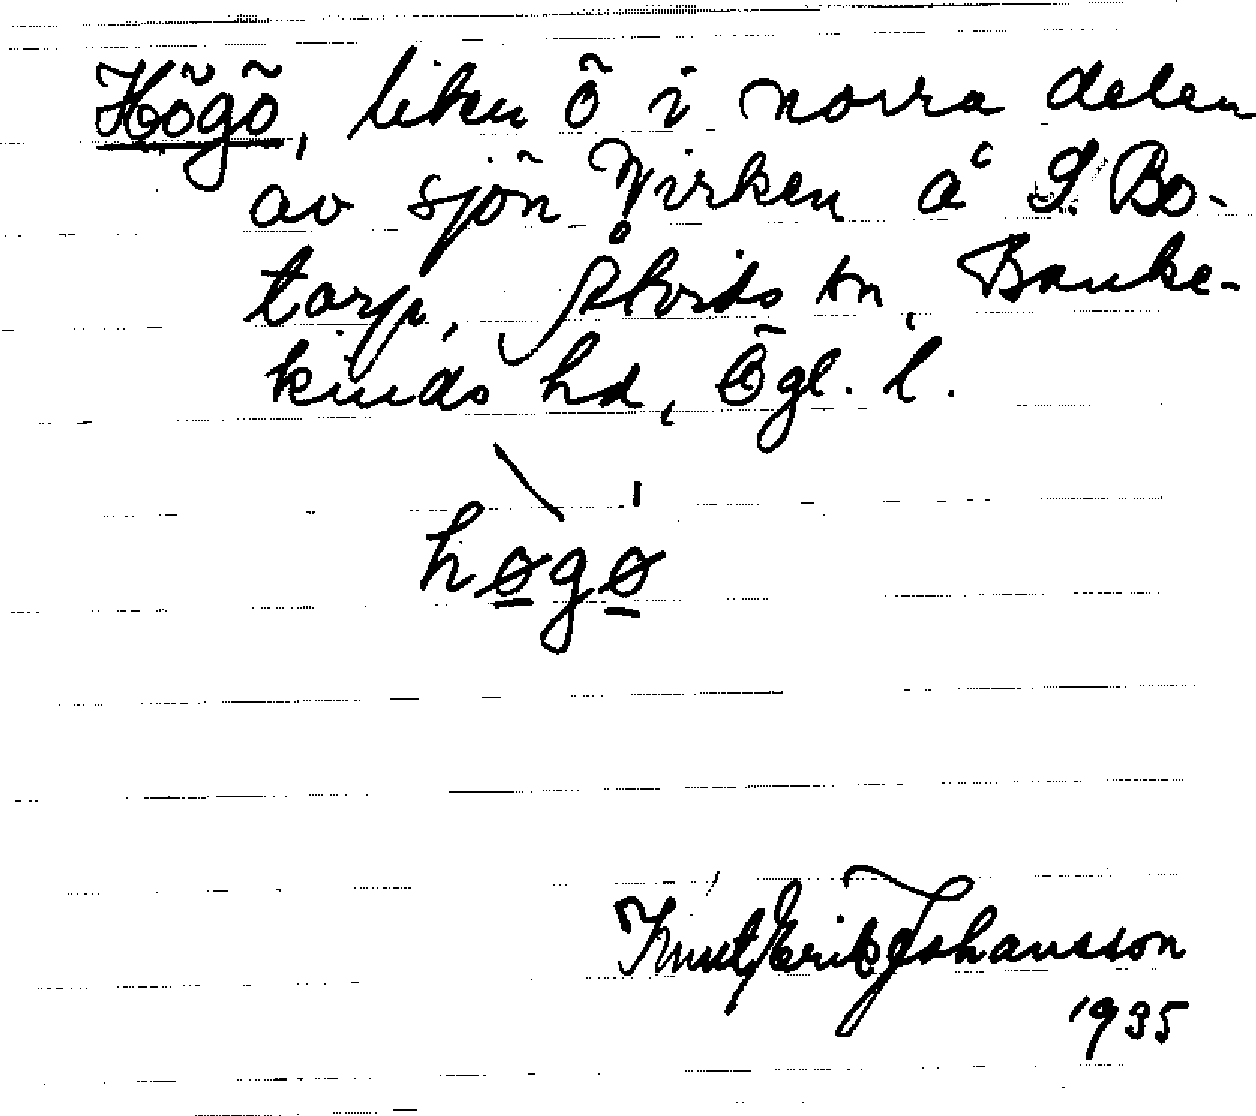 Högö, liten ö i norra delen
av sjön Yrken å S. Bo-
torp, Åtvids sn, Banke-
kinds hd, Ögl. l.
høgø
Knut Erik Johansson
1935